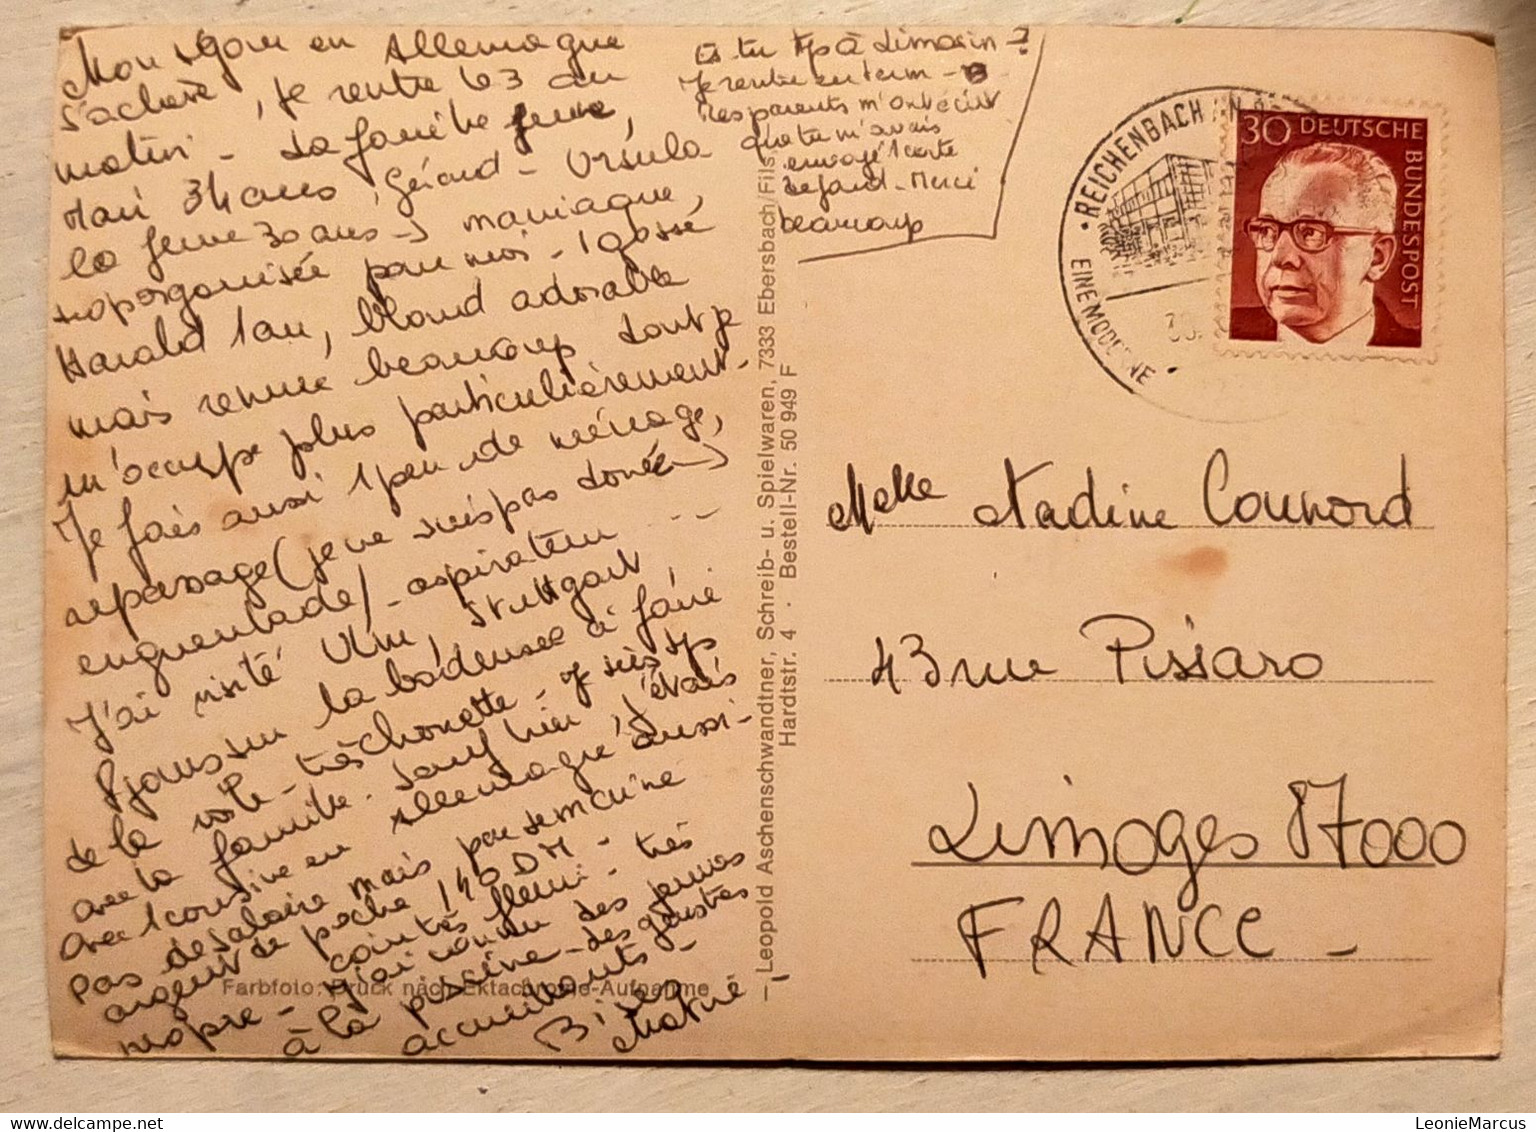 Mon séjour en Allemagne
s'achève, je rentre le 3 au
matin - La famille jeune,
Mari 34 ans, Gérard - Ursula
la femme 30 ans → maniaque,
suporganisée pour moi - 1 gosse
Harald 1 an, blond adorable
mais remue beaucoup dont je
m'occupe plus particulièrement -
Je fais aussi 1 peu de ménage,
repassage (je ne suis pas douée →
enguenlade) - aspirateur ...
J'ai visité Ulm, Stuttgart
8 jours sur la bodensee à faire
de la voile - très chouette - je suis tjs
avec la famille. Sauf hier, j'étais
avec 1 cousine en Allemagne aussi -
pas de salaire mais par semaine
argent de poche 140 DM -
propre - coin très fleuri - très
j'ai connu des jeunes
à la piscine - des gens très
accueillants -
Bises
Es tu tjs à Limosin - ?
Je rentre en term - B
Mes parents m'ont écrit
que tu m'avais
envoyé 1 carte
de Gand - Merci
beaucoup
Farbfoto: Druck nach Ektachrome-Aufnahme
— Leopold Aschenschwandtner, Schreib- u. Spielwaren, 7333 Ebersbach/Fils
Hardtstr. 4 · Bestell-Nr. 50 949 F
· REICHENBACH
EINE MODERNE
30 DEUTSCHE
BUNDESPOST
Melle Nadine Counord
43 rue Pissaro
Limoges 87000
FRANCE -
LeonieMarcus